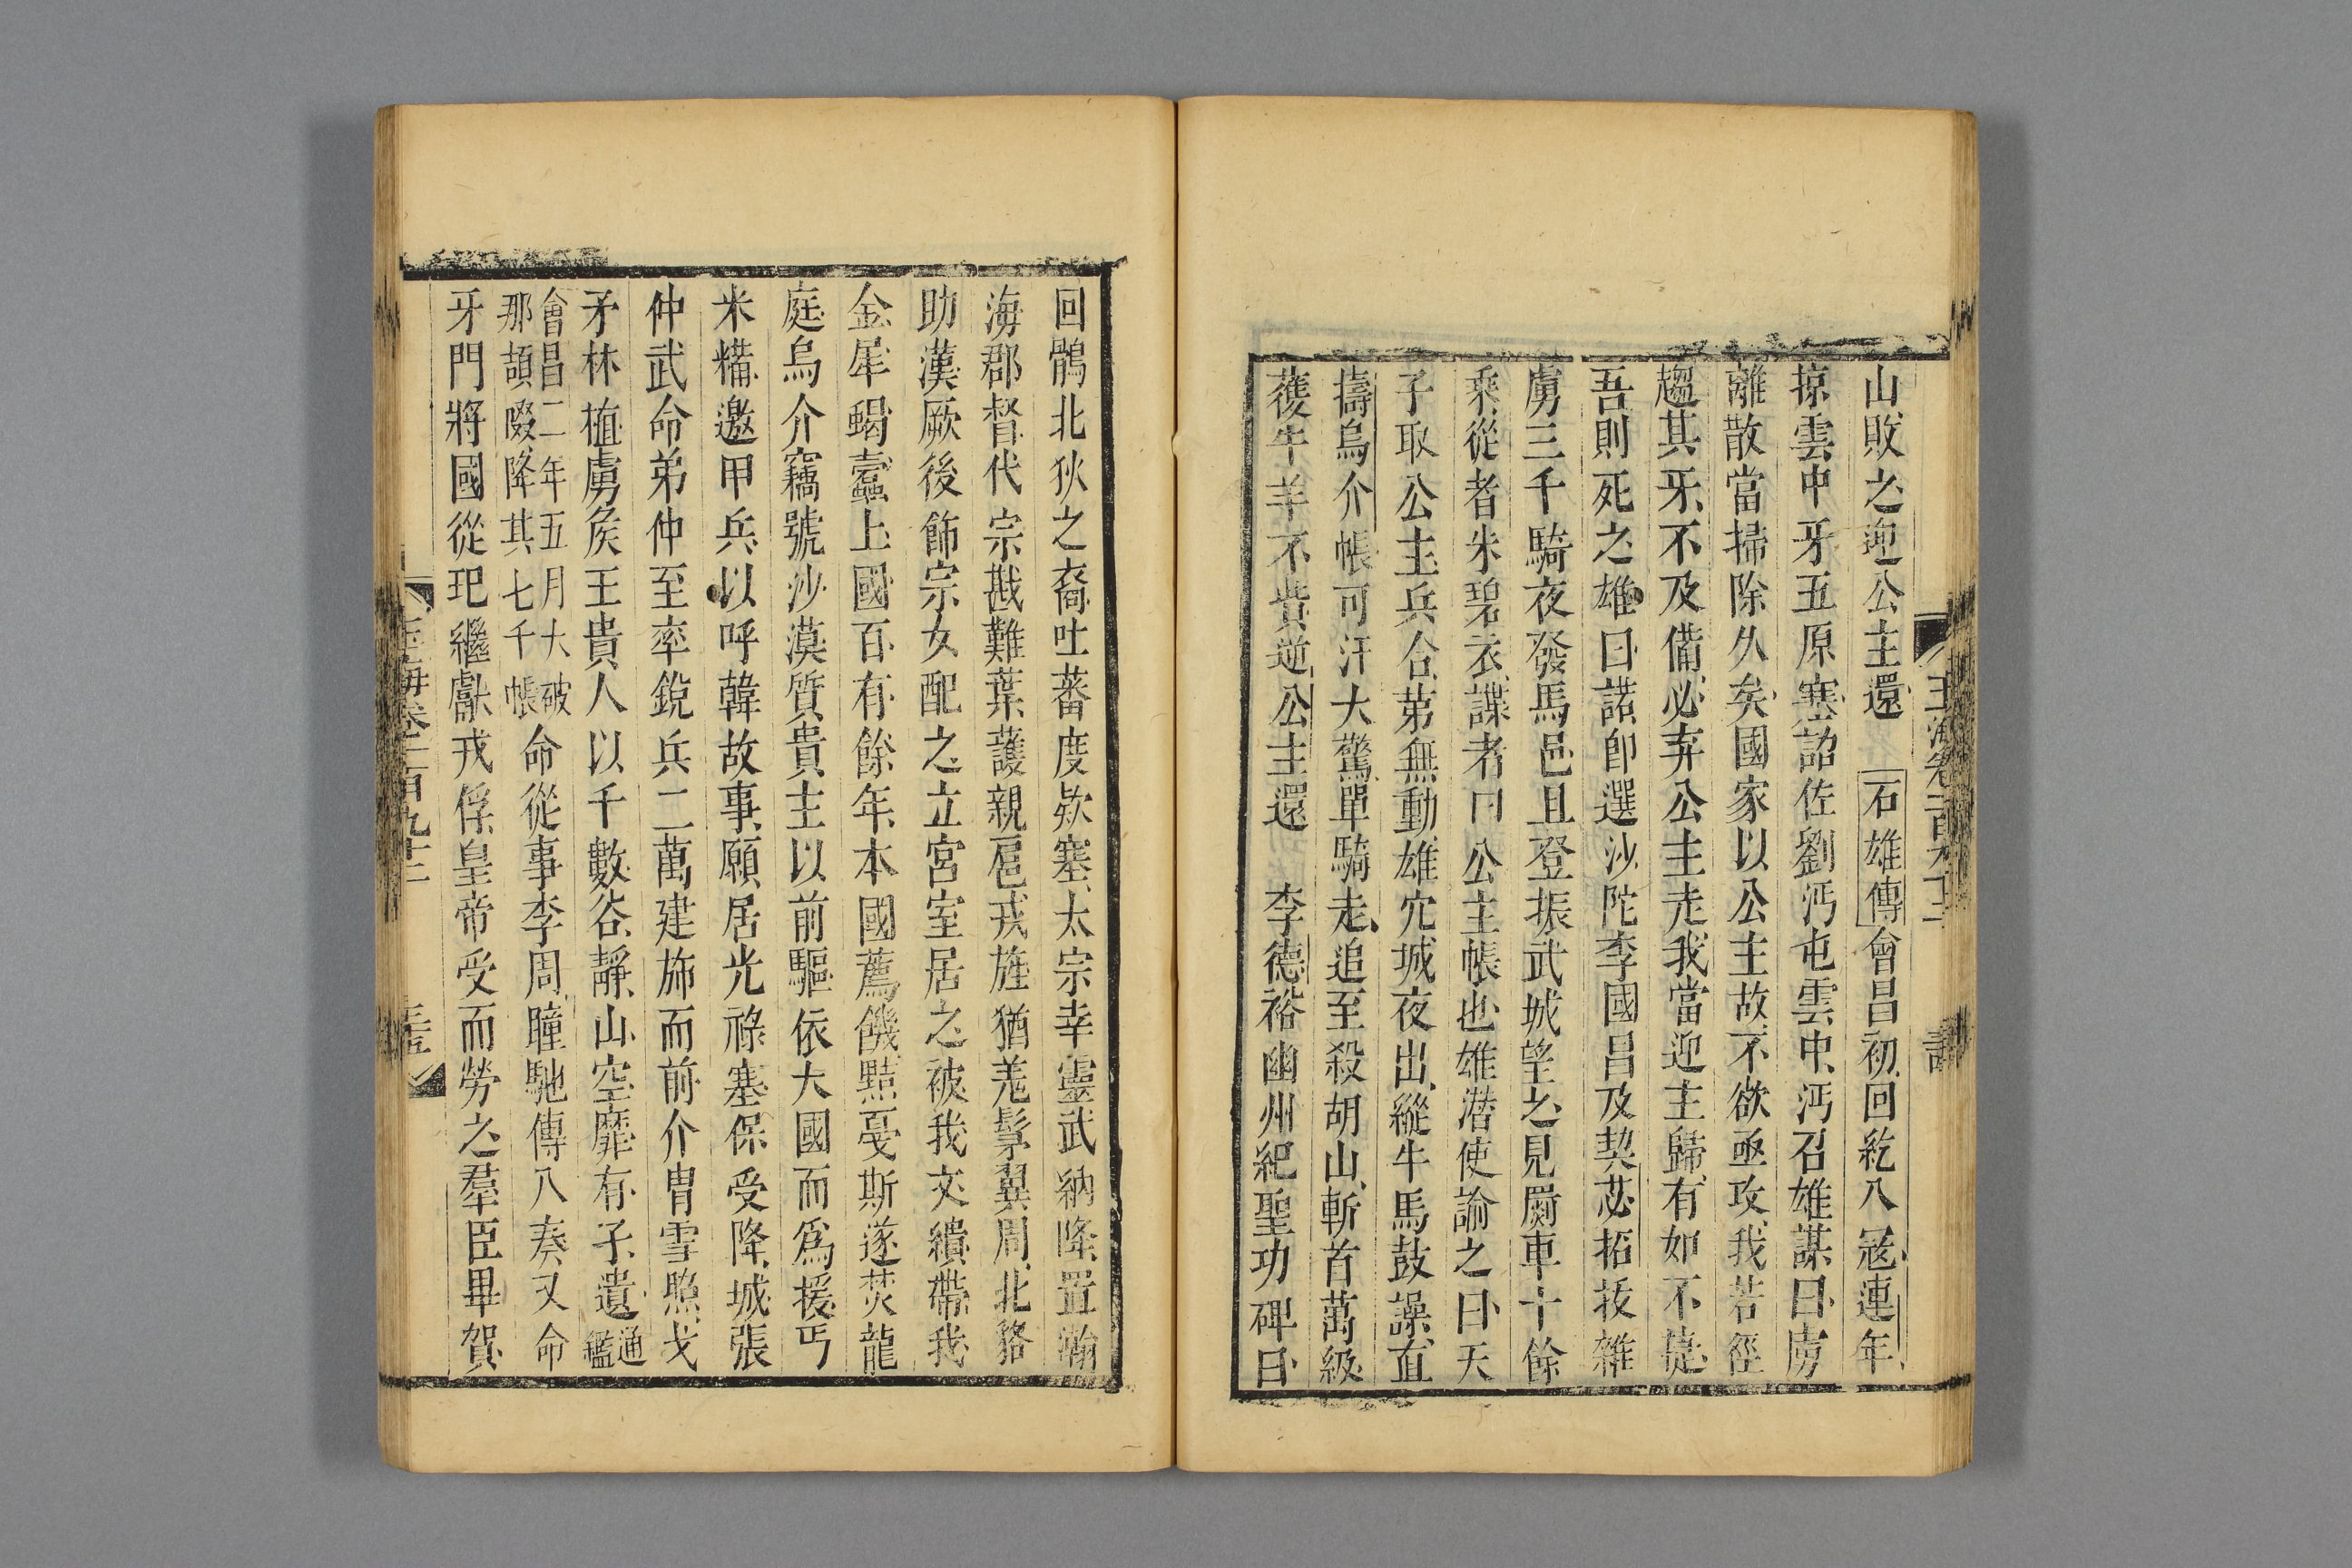 山敗之迎公主還 石雄傳會昌初回紇入寇連年
掠雲中牙五原塞詔佐劉沔屯雲中沔召雄謀曰虜
離散當掃除久矣國家以公主故不欲亟攻我若徑
趨其牙不及備必弃公主走我當迎主歸有如不捷
吾則死之雄曰諾即選沙陀李國昌及契苾拓拔雜
虜三千騎夜發馬邑且登振武城望之見罽車十餘
乘從者朱碧衣諜者曰公主帳也雄潜使諭之曰天
子取公主兵合第無動雄穴城夜出縱牛馬鼓譟直
擣烏介帳可汗大驚單騎走追至殺胡山斬首萬級
獲牛羊不貲迎公主還 李德裕幽州紀聖功碑曰
回鶻北狄之裔吐蕃度欵塞太宗幸靈武納降置瀚
海郡督代宗戡難葉護親扈戎旌猶羗髳翼周北貉
助漢厥後飾宗女配之立宮室居之被我文繢帶我
金犀蝎蠧上國百有餘年本國薦饑黠戛斯遂焚龍
庭烏介竊號沙漠質貴主以前驅依大國而爲援丐
米糒邀甲兵以呼韓故事願居光祿塞保受降城張
仲武命弟仲至率銳兵二萬建斾而前介冑雪照戈
矛林植虜矦王貴人以千數谷靜山空靡有孑遺通鑑
會昌二年五月大破那頡啜降其七千帳命從事李周瞳馳傳入奏又命
牙門將國從玘繼獻戎俘皇帝受而勞之羣臣畢賀